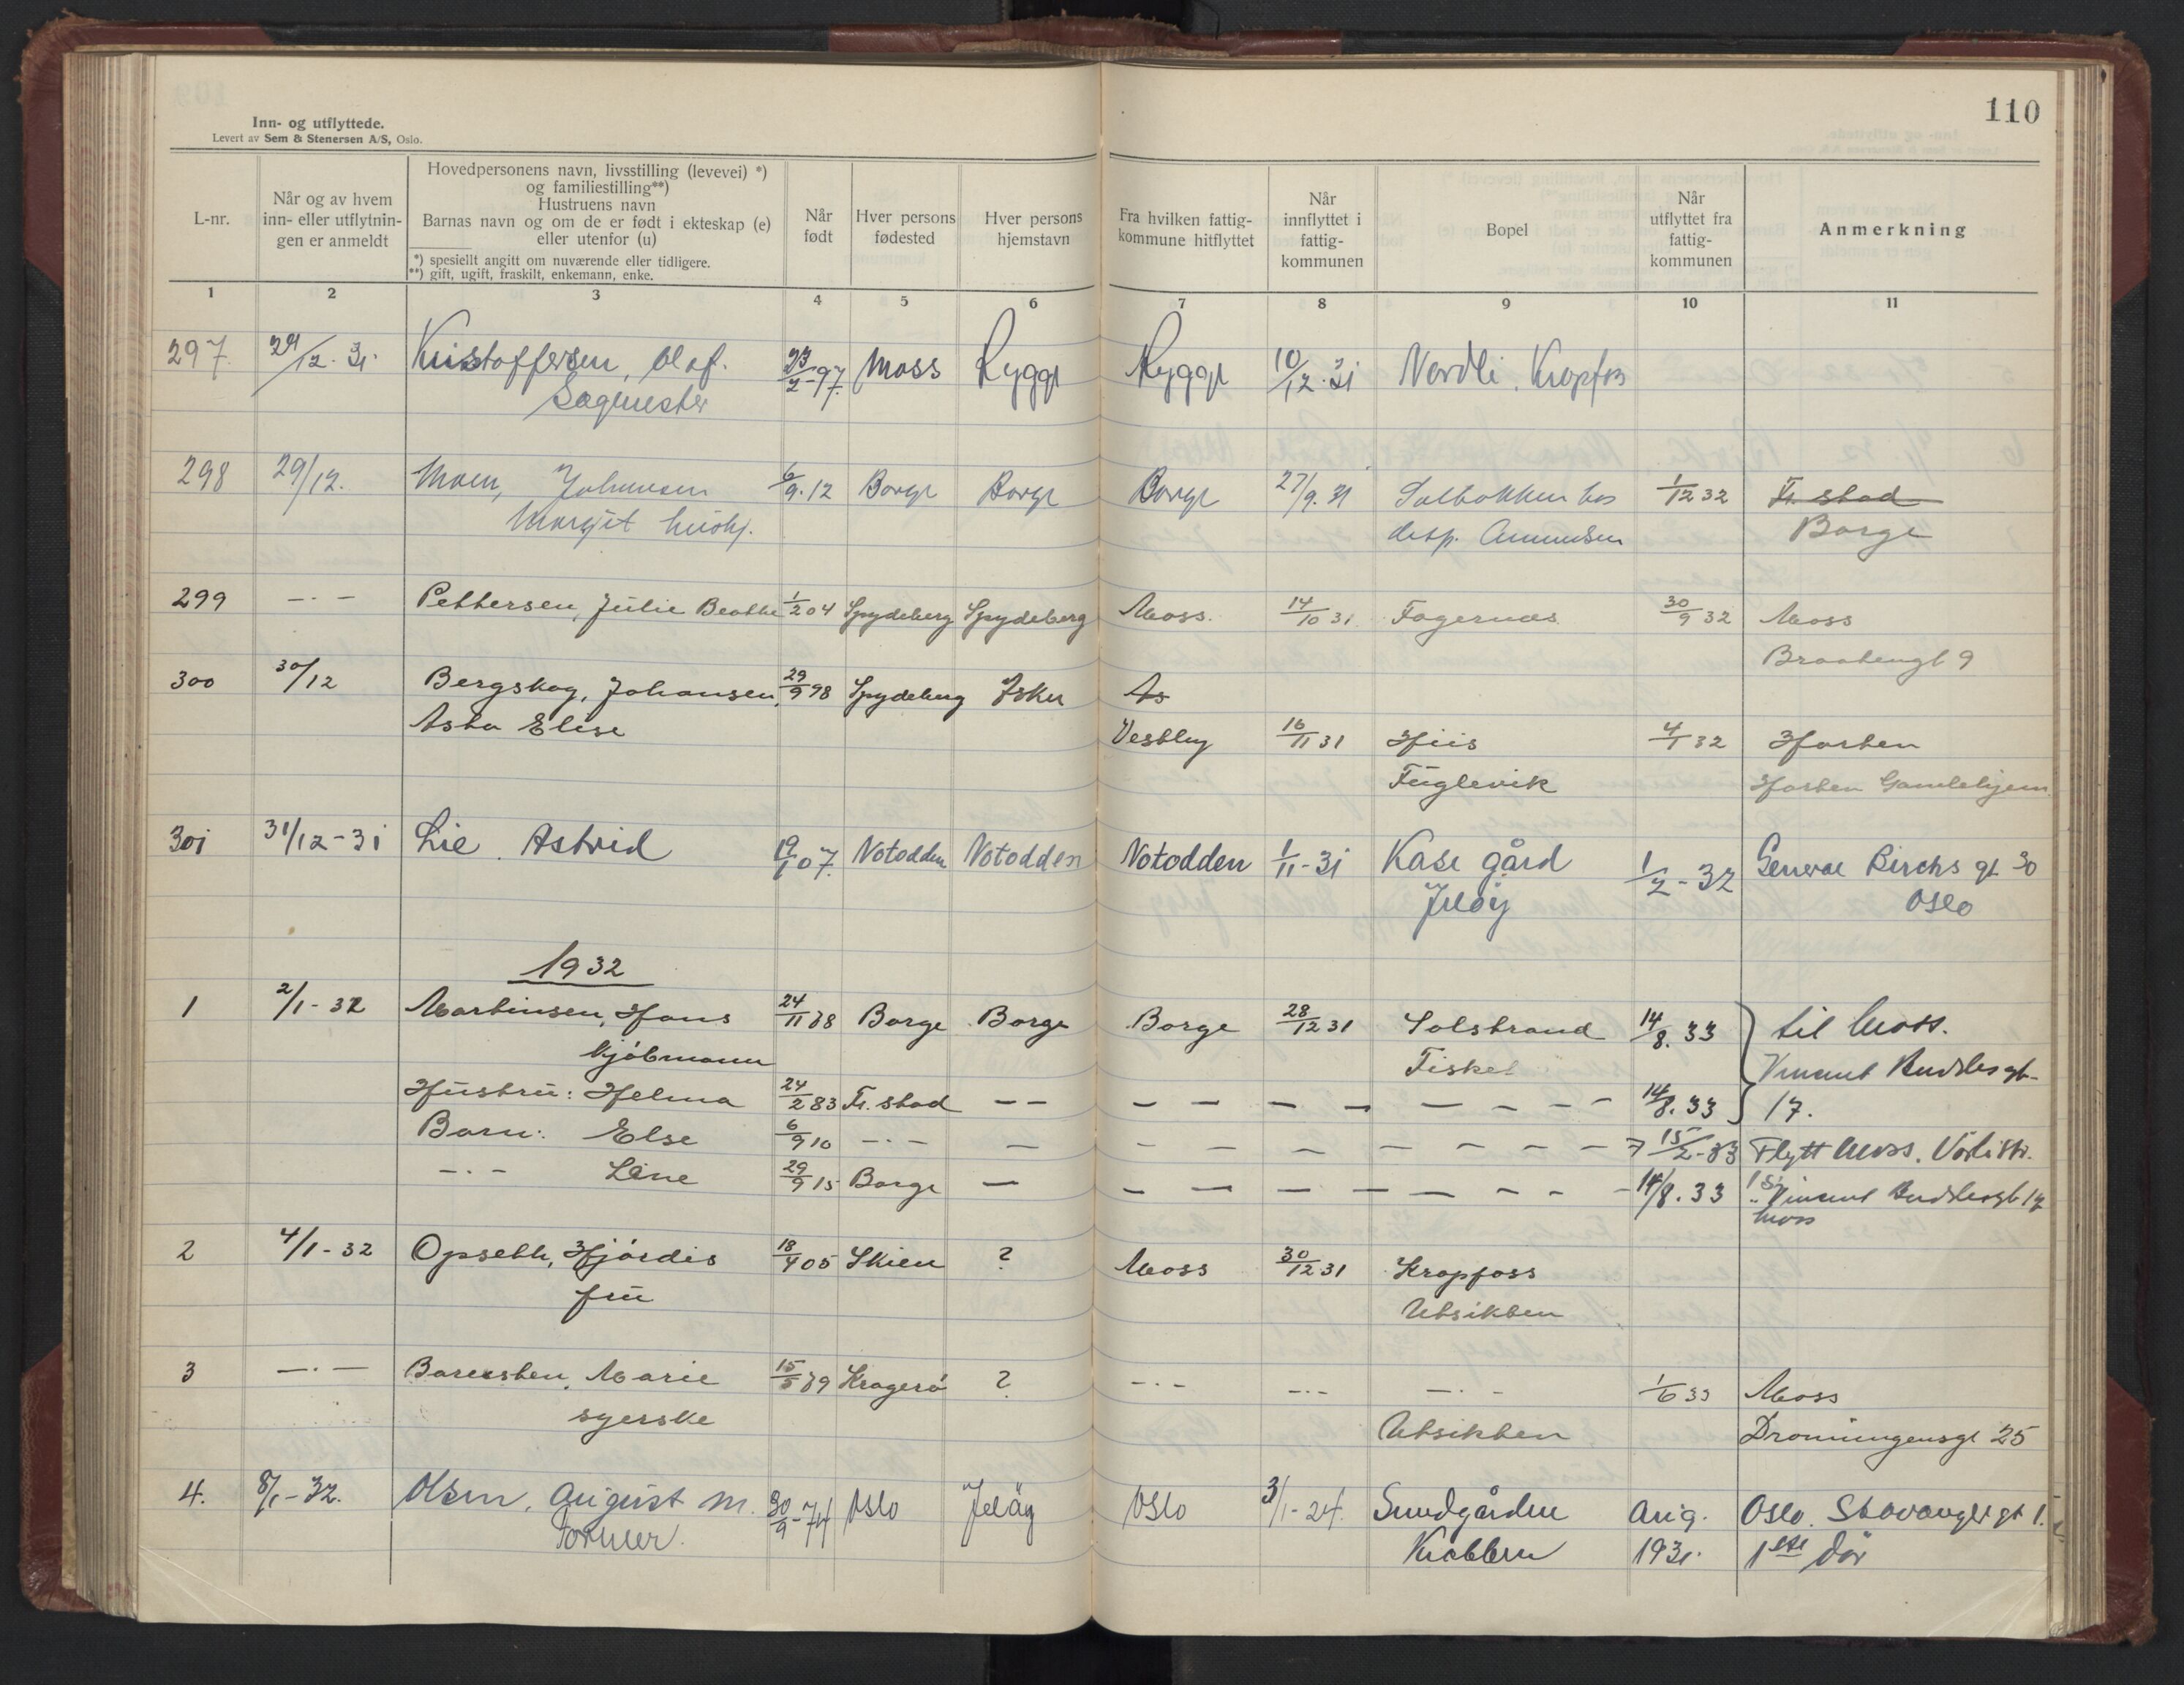 110
Inn- og utflyttede.
Levert av Sem & Stenersen A/S, Oslo.
L-nr.
Når og av hvem inn- eller utflytnin- gen er anmeldt
Hovedpersonens navn, livsstilling (levevei) *)
og familiestilling**)
Hustruens navn
Barnas navn og om de er født i ekteskap (e)
eller utenfor (u)
*) spesiellt angitt om nuværende eller tidligere.
**) gift, ugift, fraskilt, enkemann, enke.
Når født
Hver persons fødested
Hver persons hjemstavn
Fra hvilken fattig- kommune hitflyttet
Når innflyttet i fattig- kommunen
Bopel
Når utflyttet fra fattig- kommunen
Anmerkning
1 2 3 4 5 6 7 8 9 10 11
297. 29/12. 31. Kristoffersen, Olaf. 23/2-97. Moss Rygge Rygge 10/12.31 Nordli, Kropfos
Sagmester
298 29/12. Moen, Johnsen 6/9.12 Borge Borge Borge 27/9.31 Solbakken hos 1/12 32 Fr. stad
Margit hush. disp. Amundsen Borge
299 -.- Pettersen, Julie Beathe 1/2 04 Spydeberg Spydeberg Moss. 14/10 31 Fagernæs 30/9 32 Moss
Braatengt 9
300 30/12 Bergskog, Johansen, 29/9 98 Spydeberg Isker As
Asta Elise Vestby 16/11 31 Hiis 4/1 32 Horten
Fuglevik Horten Gamlehjem
301 31/12-31 Lie. Astrid 19/1 07. Notodden Notodden Notodden 1/11-31 Kase gård 1/2-32 General Birchs gt 30
Jeløy Oslo
1932
1 2/1-32 Martinsen, Hans 24/11 88 Borge Borge Borge 28/12 31 Solstrand 14/8.33 til Moss.
Kjøbmann Fiske Vincent Budsles gt-
Hustru: Helma 24/2 83 Fr. stad - - - - - - - - - - 14/8.33 17.
Barn: Else 6/9 10 -.- - - - - - - - - - 15/2-33 Flytt Moss.
-.- Line 29/9 15 Borge - - - - - - - - - 14/8.33 Vincent Budslesgt 17
Moss
2 4/1-32 Opseth, Hjørdis 18/4 05 Skien ? Moss 30/12 31 Kropfoss
fru Utsikten
3 -.- Bareksten, Marie 15/5 89 Kragerø ? -.- -.- -.- 1/6 33 Moss
syerske Utsikten Dronningensgt 25
4. 8/1-32. Olsen, August M. 30/9-74 Oslo Jeløy Oslo 3/1-24. Sundgården Aug. Oslo. Stavanger gt 1.
Former. Krabben 1931. 1ste dør